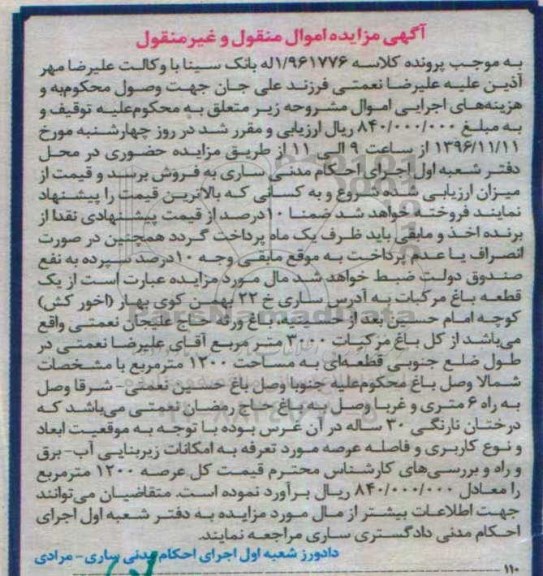 آگهی مزایده اموال منقول و غیر منقول
به موجب پرونده کلاسه ۱/۹۶۱۷۷۶له بانک سینا با وکالت علیرضا مهر
آذین علیه علیرضا نعمتی فرزند علی جان جهت وصول محکوم‌به و
هزینه‌های اجرایی اموال مشروحه زیر متعلق به محکوم‌علیه توقیف و
به مبلغ ۸۴۰/۰۰۰/۰۰۰ ریال ارزیابی و مقرر شد در روز چهارشنبه مورخ
۱۳۹۶/۱۱/۱۱ از ساعت ۹ الی ۱۱ از طریق مزایده حضوری در محل
دفتر شعبه اول اجرای احکام مدنی ساری به فروش برسد و قیمت از
میزان ارزیابی شده شروع و به کسانی که بالاترین قیمت را پیشنهاد
نمایند فروخته خواهد شد ضمنا ۱۰درصد از قیمت پیشنهادی نقدا از
برنده اخذ و مابقی باید ظرف یک ماه پرداخت گردد همچنین در صورت
انصراف یا عدم پرداخت به موقع مابقی وجه ۱۰درصد سپرده به نفع
صندوق دولت ضبط خواهد شد مال مورد مزایده عبارت است از یک
قطعه باغ مرکبات به آدرس ساری خ ۲۲ بهمن کوی بهار (اخور کش)
کوچه امام حسین بعد از حسینیه، باغ ورثه حاج علیجان نعمتی واقع
می‌باشد از کل باغ مرکبات ۳۰۰۰ متر مربع آقای علیرضا نعمتی در
طول ضلع جنوبی قطعه‌ای به مساحت ۱۲۰۰ مترمربع با مشخصات
شمالا وصل باغ محکوم‌علیه جنوبا وصل باغ حسین نعمتی- شرقا وصل
به راه ۶ متری و غربا وصل به باغ حاج رمضان نعمتی می‌باشد که
درختان نارنگی ۳۰ ساله در آن غرس بوده با توجه به موقعیت ابعاد
و نوع کاربری و فاصله عرصه مورد تعرفه به امکانات زیربنایی آب- برق
و راه و بررسی‌های کارشناس محترم قیمت کل عرصه ۱۲۰۰ مترمربع
را معادل ۸۴۰/۰۰۰/۰۰۰ ریال برآورد نموده است. متقاضیان می‌توانند
جهت اطلاعات بیشتر از مال مورد مزایده به دفتر شعبه اول اجرای
احکام مدنی دادگستری ساری مراجعه نمایند.
دادورز شعبه اول اجرای احکام مدنی ساری- مرادی
۱۱۰
ParsNamadData